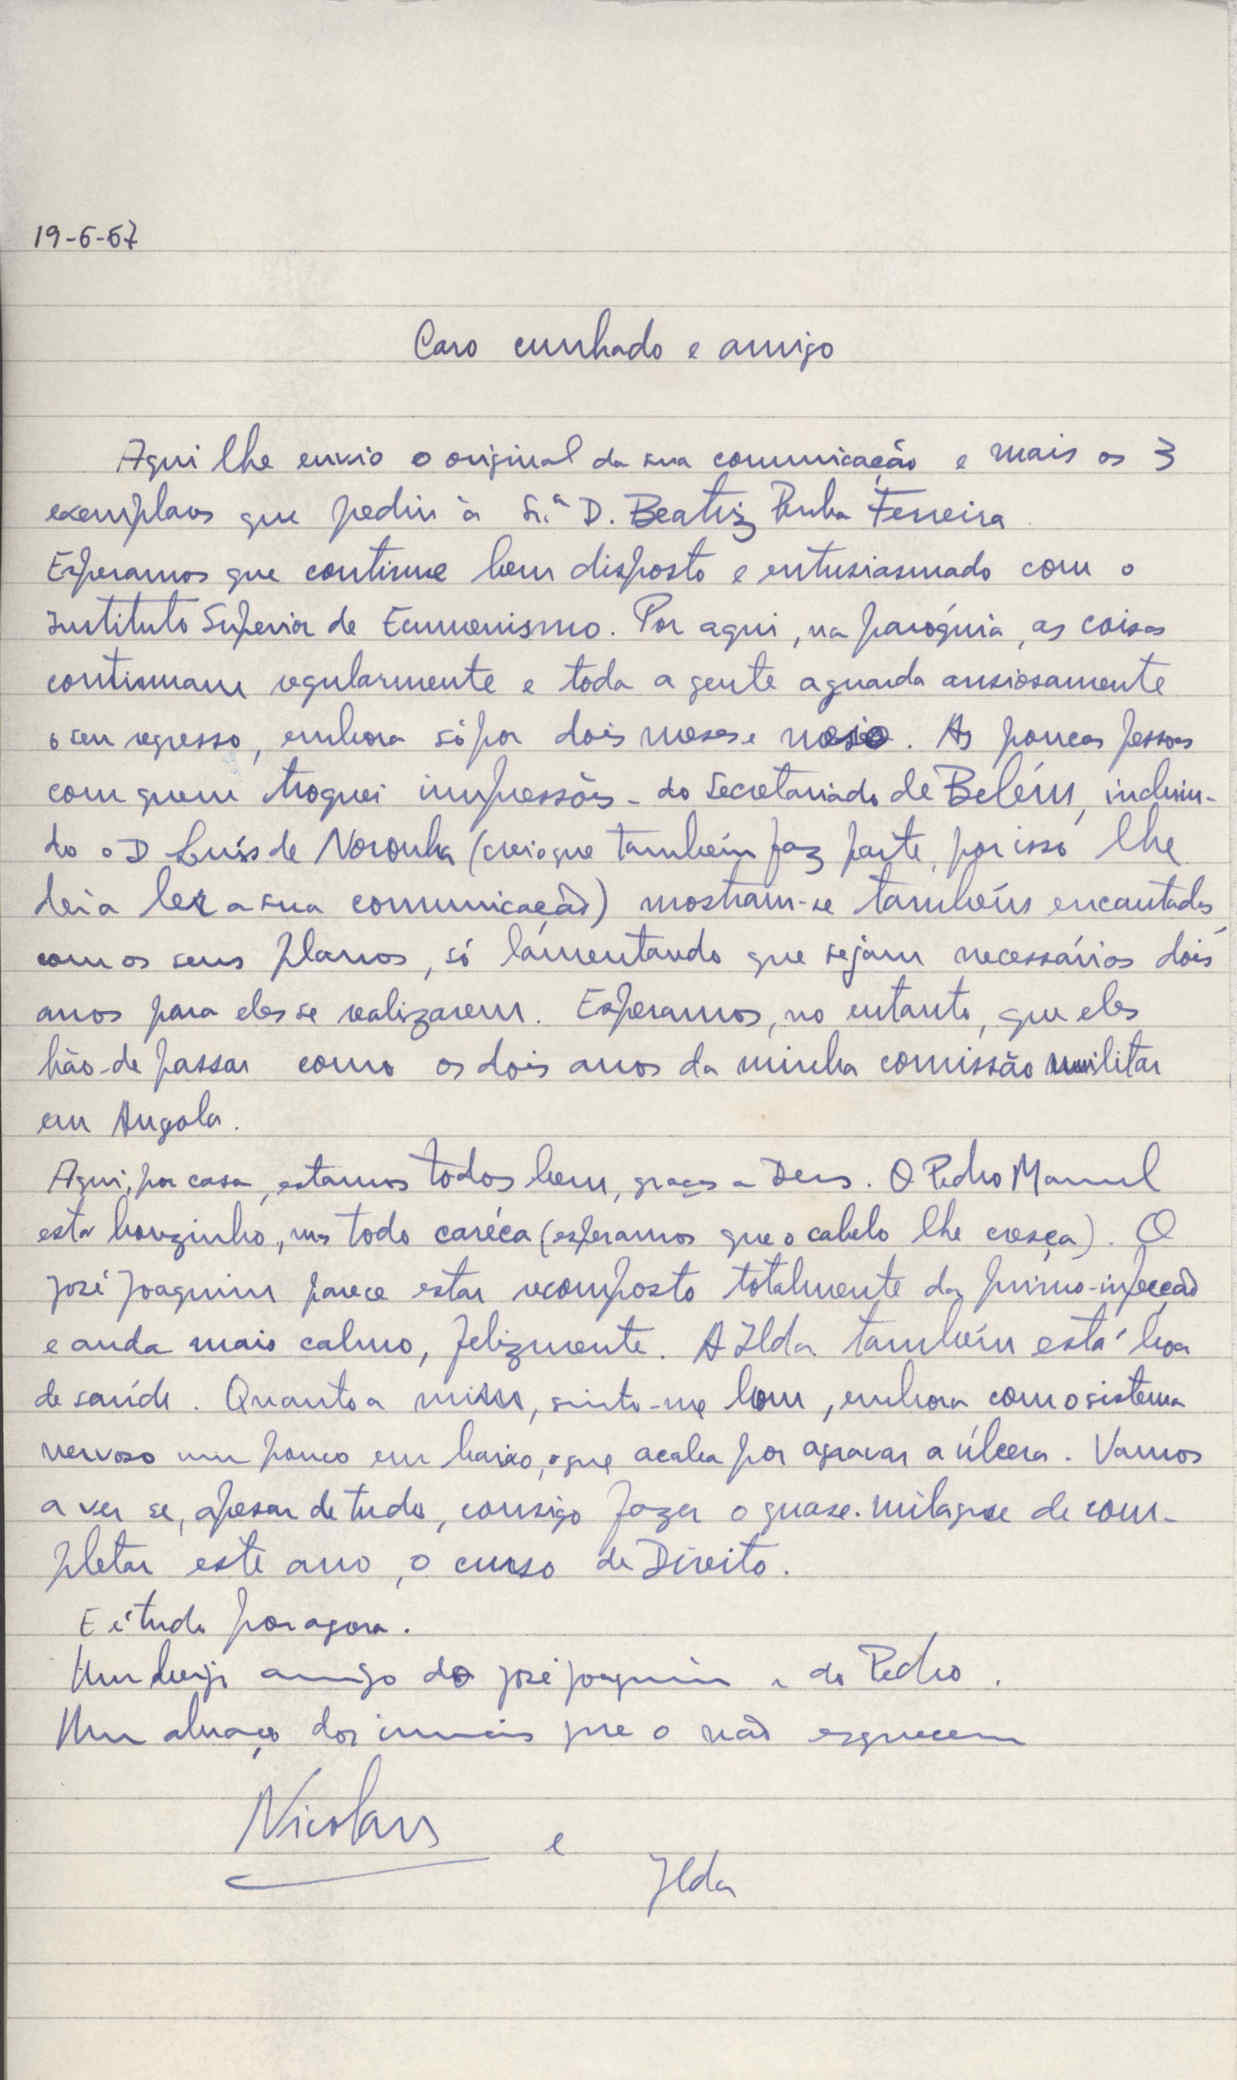 19-6-67
Caro cunhado e amigo
Aqui lhe envio o original da sua comunicação e mais os 3
exemplares que pediu à Sr.ª D. Beatriz Ferreira
Esperamos que continue bem disposto e entusiasmado com o
Instituto Superior de Ecumenismo. Por aqui, na paróquia, as coisas
continuam regularmente e toda a gente aguarda ansiosamente
o seu regresso, embora só por dois meses e meio. As poucas pessoas
com quem troquei impressões - do Secretariado de Belém, incluin-
do o D Luís de Noronha (creio que também faz parte, por isso lhe
dei a ler a sua comunicação) mostram-se também encantados
com os seus planos, só lamentando que sejam necessários dois
anos para eles se realizarem. Esperamos, no entanto, que eles
hão-de passar como os dois anos da minha comissão militar
em Angola.
Aqui, por casa, estamos todos bem, graças a Deus. O Pedro Manuel
está bonzinho, mas todo caréca (esperamos que o cabelo lhe cresça). O
José Joaquim parece estar recomposto totalmente da primo-infecção
e anda mais calmo, felizmente. A Ilda também está boa
de saúde. Quanto a mim, sinto-me bem, embora com o sistema
nervoso um pouco em baixo, o que acaba por agravar a úlcera. Vamos
a ver se, apesar de tudo, consigo fazer o quase-milagre de com-
pletar este ano, o curso de Direito.
E é tudo por agora.
Um beijo amigo do José Joaquim e do Pedro.
Um abraço dos irmãos que o não esquecem
Nicolau
e
Ilda